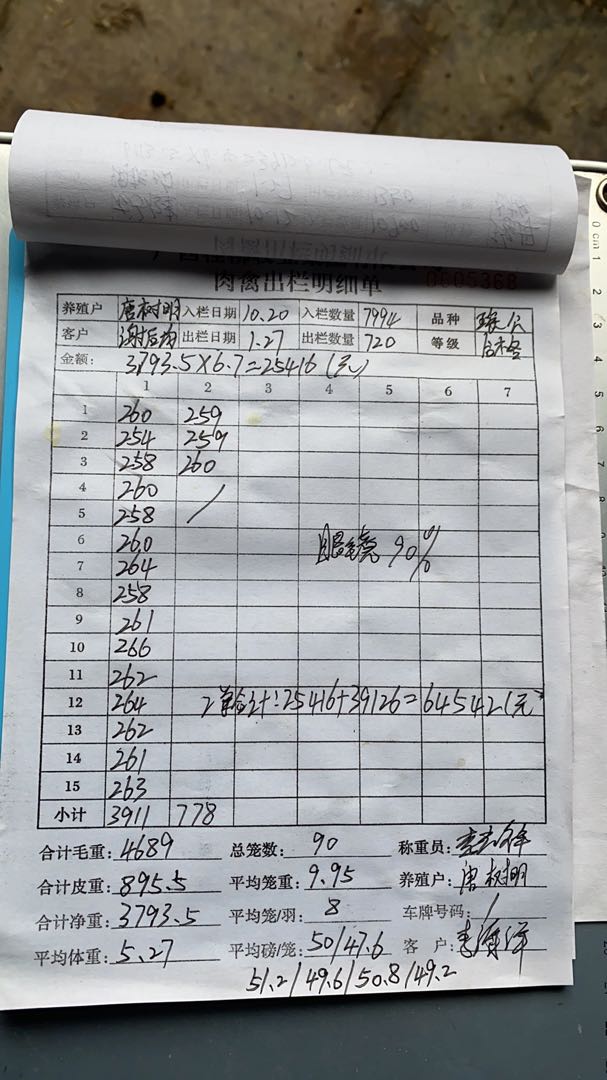 肉禽出栏明细单 0605368
养殖户 唐树明 入栏日期 10.20 入栏数量 7994 品种
客户 出栏日期 1.27 出栏数量 720 等级
金额: 3793.5×6.7=25416(元)
1 2 3 4 5 6 7
1 260 259
2 254 259
3 258 260
4 260
5 258
6 260 眼镜 90%
7 264
8 258
9 261
10 266
11 262
12 264 2单合计:25416+39126=64542(元
13 262
14 261
15 263
小计 3911 778
合计毛重: 4689 总笼数: 90 称重员:
合计皮重: 895.5 平均笼重: 9.95 养殖户: 唐树明
合计净重: 3793.5 平均笼/羽: 8 车牌号码: /
平均体重: 5.27 平均磅/笼: 50/47.6 客 户:
51.2/49.6/50.8/49.2